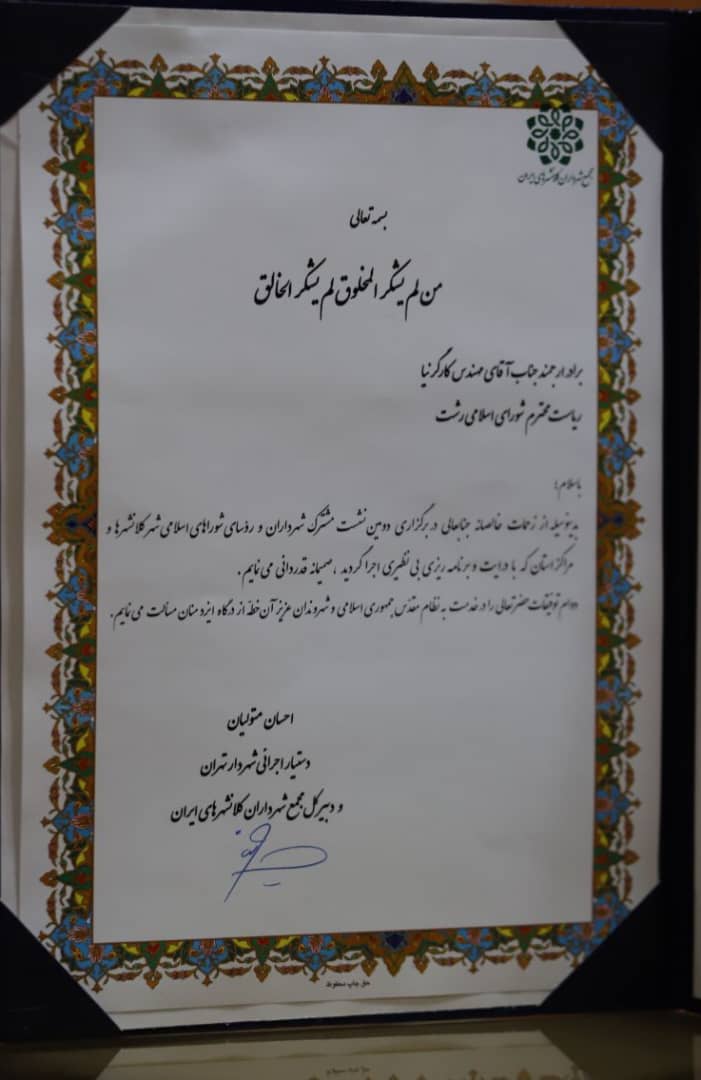 مجمع شهرداران کلانشهرهای ایران
بسمه تعالی
من لم یشکر المخلوق لم یشکر الخالق
برادر ارجمند جناب آقای مهندس کارگرنیا
ریاست محترم شورای اسلامی رشت
باسلام؛
بدینوسیله از زحمات خالصانه جنابعالی در برگزاری دومین نشست مشترک شهرداران و رؤسای شوراهای اسلامی شهر کلانشهرها و
مراکز استان که با درایت و برنامه ریزی بی نظیری اجرا گردید ، صمیمانه قدردانی می نمایم .
دوام توفیقات حضرتعالی را در خدمت به نظام مقدس جمهوری اسلامی و شهروندان عزیز آن خطه از درگاه ایزد منان مسألت می نمایم .
احسان متولیان
دستیار اجرائی شهردار تهران
و دبیر کل مجمع شهرداران کلانشهرهای ایران
حق چاپ محفوظ